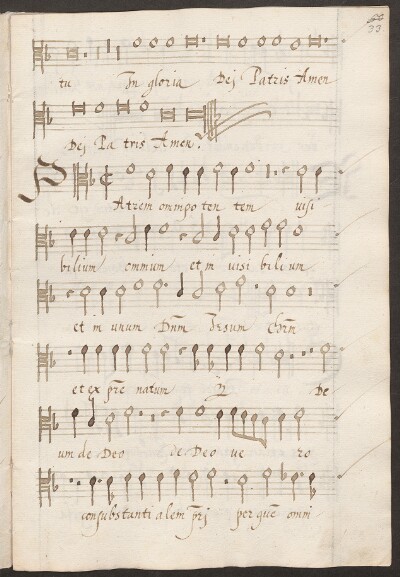 33
tu In gloria Dej Patris Amen
Dej Pa tris Amen.
PAtrem omnipo ten tem visi
bilium omnium et in visi bilium
et in unum Dnm Jesum Chrm
et ex pre natum
De
um de Deo de Deo ve ro
consubstanti alem prj per que omni